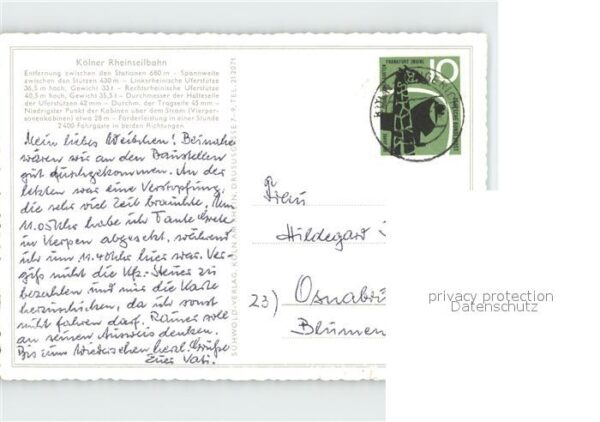 Kölner Rheinseilbahn
Entfernung zwischen den Stationen 680 m – Spannweite
zwischen den Stützen 430 m – Linksrheinische Uferstütze
36,5 m hoch, Gewicht 33 t – Rechtsrheinische Uferstütze
40,5 m hoch, Gewicht 35,5 t – Durchmesser der Halteseile
der Uferstützen 42 mm – Durchm. der Tragseile 45 mm –
Niedrigster Punkt der Kabinen über dem Strom (Vierper-
sonenkabinen) etwa 28 m – Förderleistung in einer Stunde
2400 Fahrgäste in beiden Richtungen
Mein liebes Weibchen! Beinahe
wären wir an den Baustellen
gut durchgekommen. An der
letzten war eine Verstopfung,
die sehr viel Zeit brauchte. Um
11.05 Uhr habe ich Tante Grete
in Kerpen abgesetzt, während
ich um 11.40 Uhr hier war. Ver-
giß nicht die Kfz-Steuer zu
bezahlen und mir die Karte
herzuschicken, da ich sonst
nicht fahren darf. Rainer solle
an seinen Ausweis denken.
Bis zum Wiedersehen herzl. Grüße
Euer Vati.
SÜHWOLD-VERLAG, KÖLN AM RHEIN, DRUSUSGASSE 7-9, TEL. 212071
FRANKFURT (MAIN)
10
Frau
Hildegard
23) Osnabrü
Blumen
privacy protection
Datenschutz